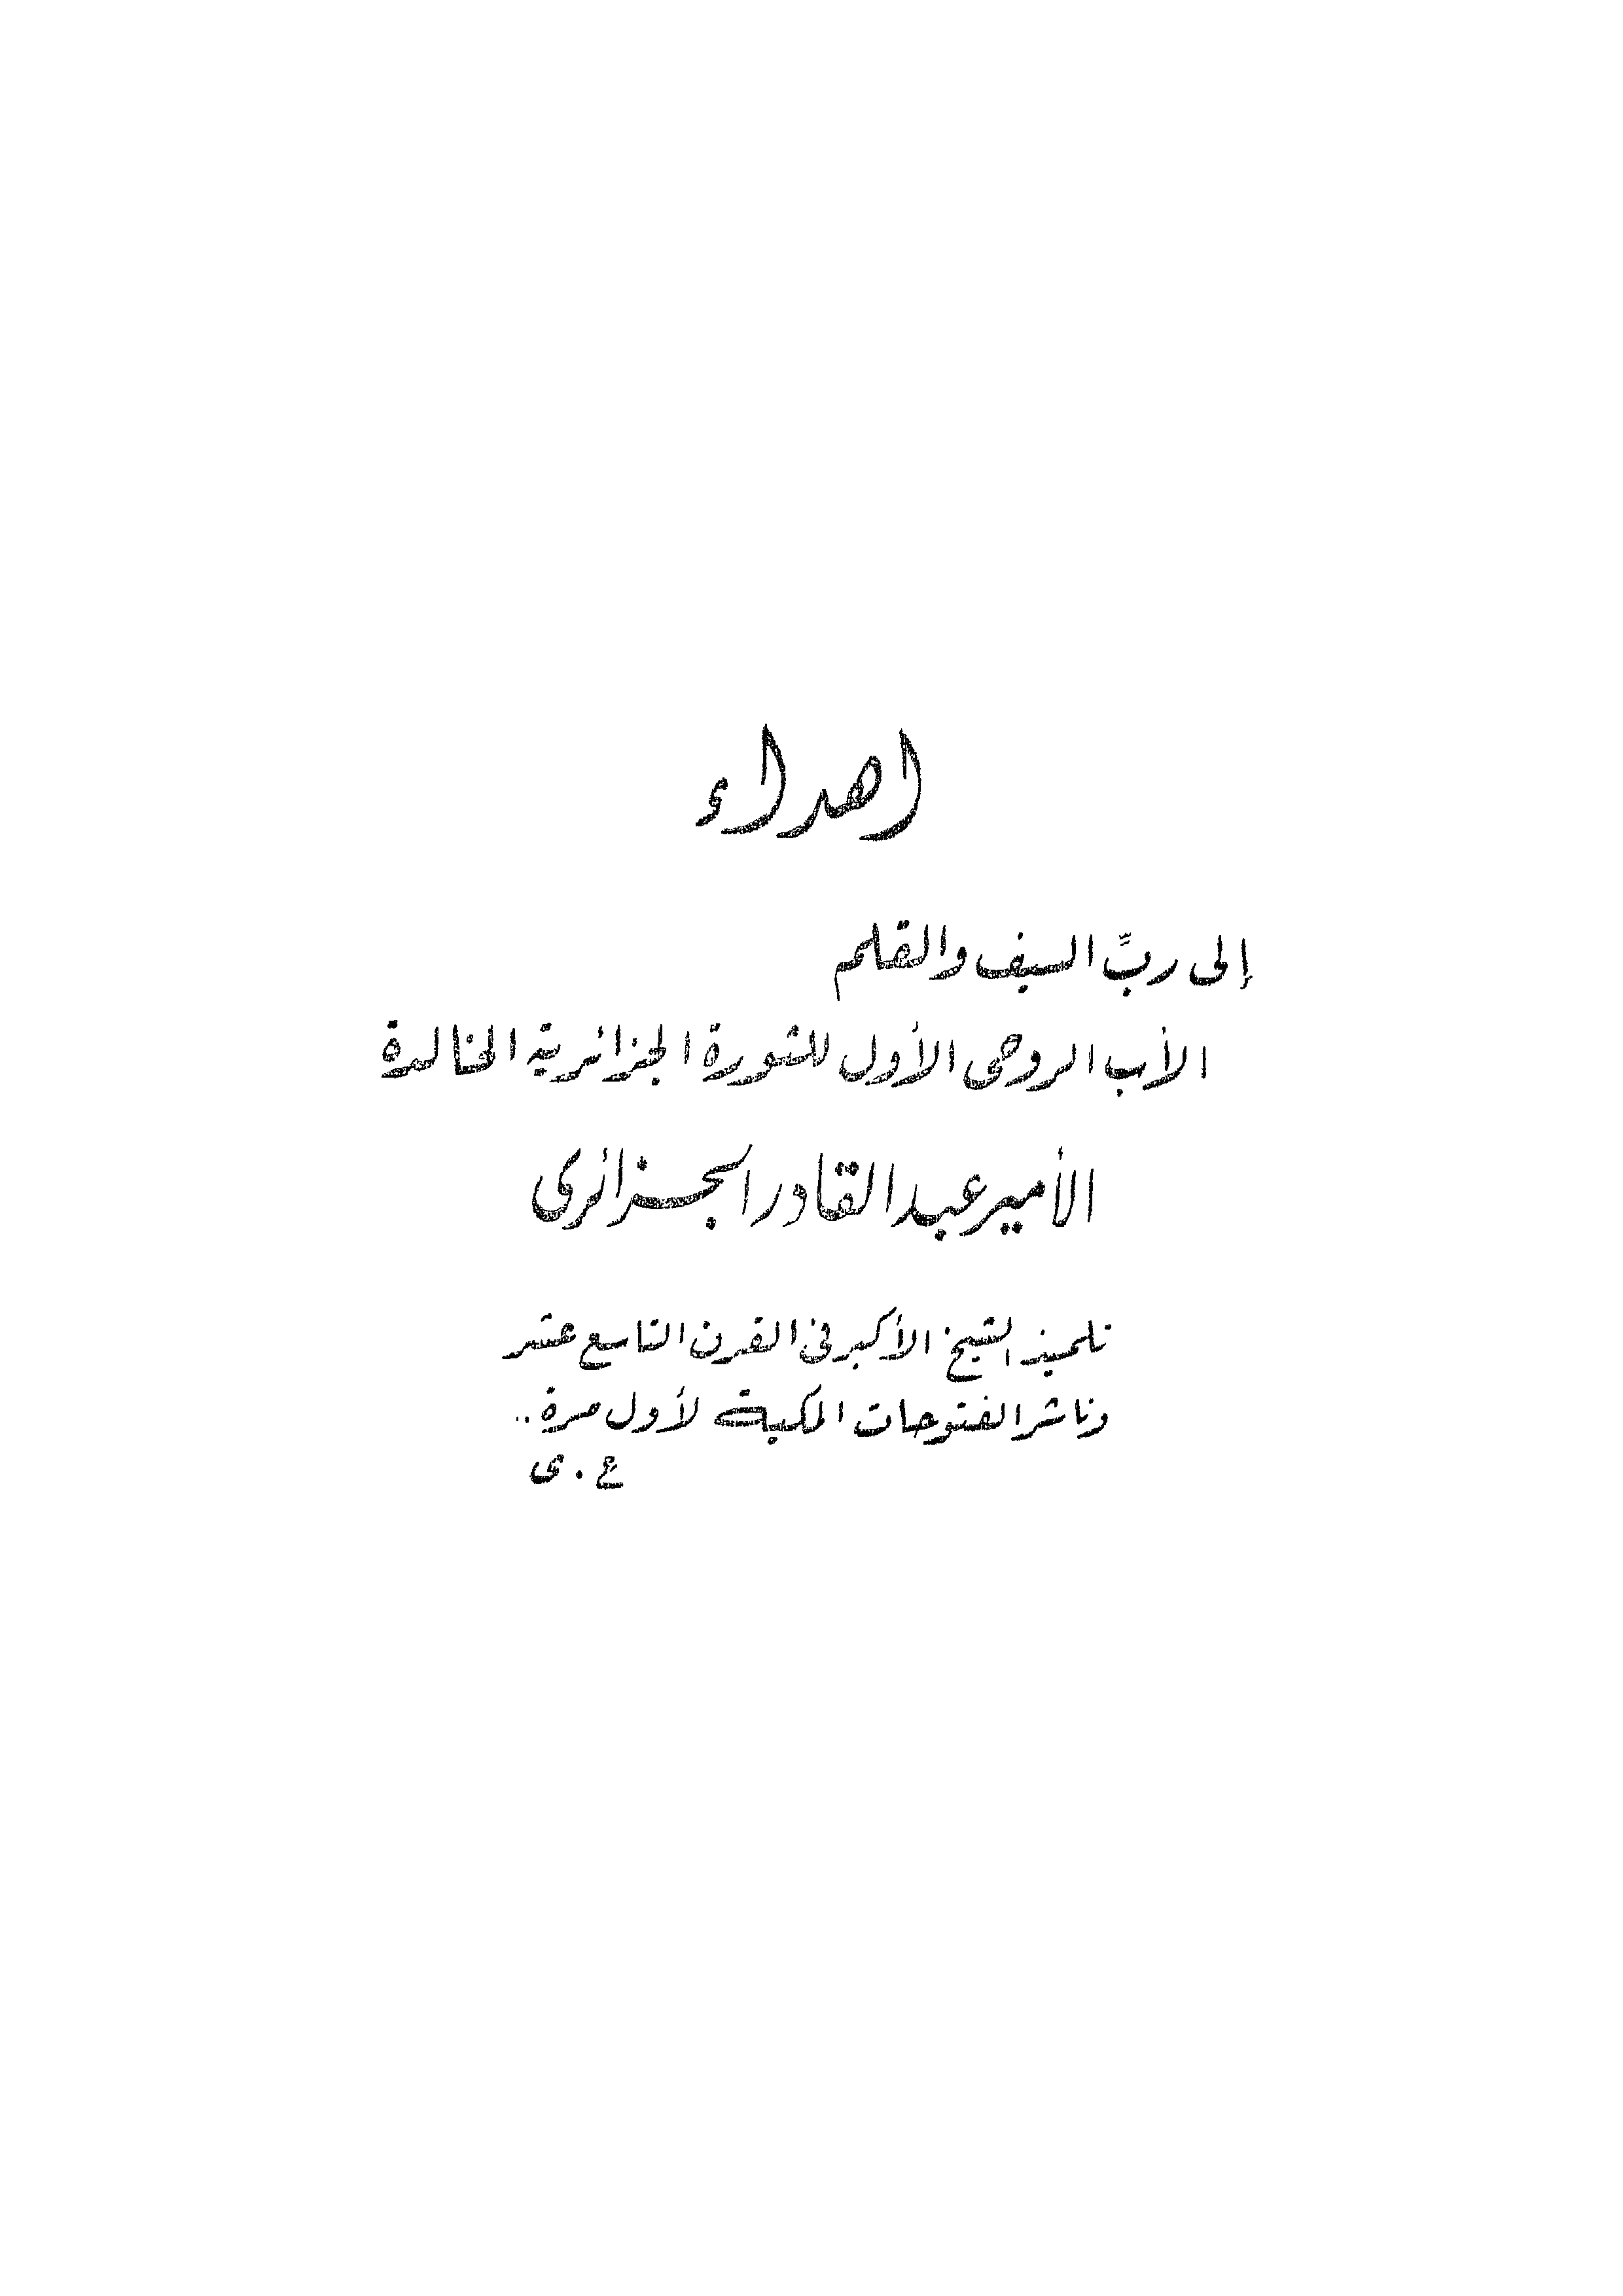 اهداء
إلى ربِّ السيف والقلم
الأب الروحى الأول للثورة الجزائرية الخالدة
الأمير عبد القادر الجزائرى
تلميذ الشيخ الأكبر فى القرن التاسع عشر
وناشر الفتوحات المكية لأول مرة ..
ع . ى